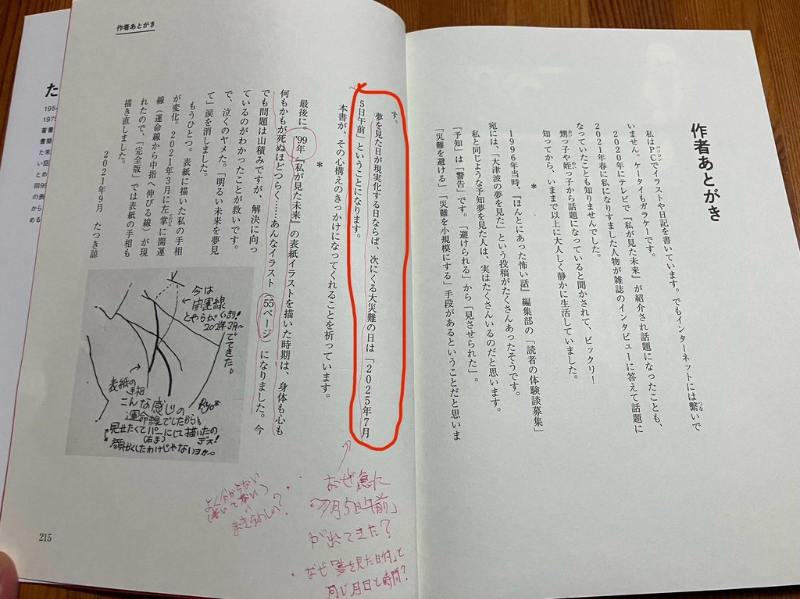 作者あとがき
私はPCでイラストや日記を書いています。でもインターネットには繋いで
いません。ケータイもガラケーです。
2020年にテレビで『私が見た未来』が紹介され話題になったことも、
2021年春に私になりすました人物が雑誌のインタビューに答えて話題に
なっていたことも知りませんでした。
甥っ子や姪っ子から話題になっていると聞かされて、ビックリー
知ってから、いままで以上に大人しく静かに生活していました。
*
1996年当時、『ほんとにあった怖い話』編集部の「読者の体験談募集」
宛には、「大津波の夢を見た」という投稿がたくさんあったそうです。
私と同じような予知夢を見た人は、実はたくさんいるのだと思います。
「予知」は「警告」です。「避けられる」から「見させられた」。
「災難を避ける」「災難を小規模にする」手段があるということだと思いま
作者あとがき
す。
夢を見た日が現実化する日ならば、次にくる大災難の日は「2025年7月
5日午前」ということになります。
本書が、その心構えのきっかけになってくれることを祈っています。
*
最後に。'99年『私が見た未来』の表紙イラストを描いた時期は、身体も心も
何もかもが死ぬほどつらく……あんなイラスト(55ページ)になりました。今
でも問題は山積みですが、解決に向っ
ているのがわかったことが救いです。
で、泣くのヤメた。「明るい未来を夢見
て」涙を消しました。
もうひとつ。表紙に描いた私の手相
が変化。2021年3月に左掌に開運
線(運命線から中指へ伸びる線)が現
れたので、「完全版」では表紙の手相も
描き直しました。
2021年9月 たつき諒
今は
開運線
とやらが
2021年3月〜
できてた。
表紙の
手相
こんな感じの
運命線でしたから
見せたくてパーにして描いたの
デス!
顔出ししたわけじゃないヨ〜。
なぜ急に
「7月5日午前」
が出てきた?
なぜ「夢を見た日付」と
同じ月日と時間?
よく分からない
215